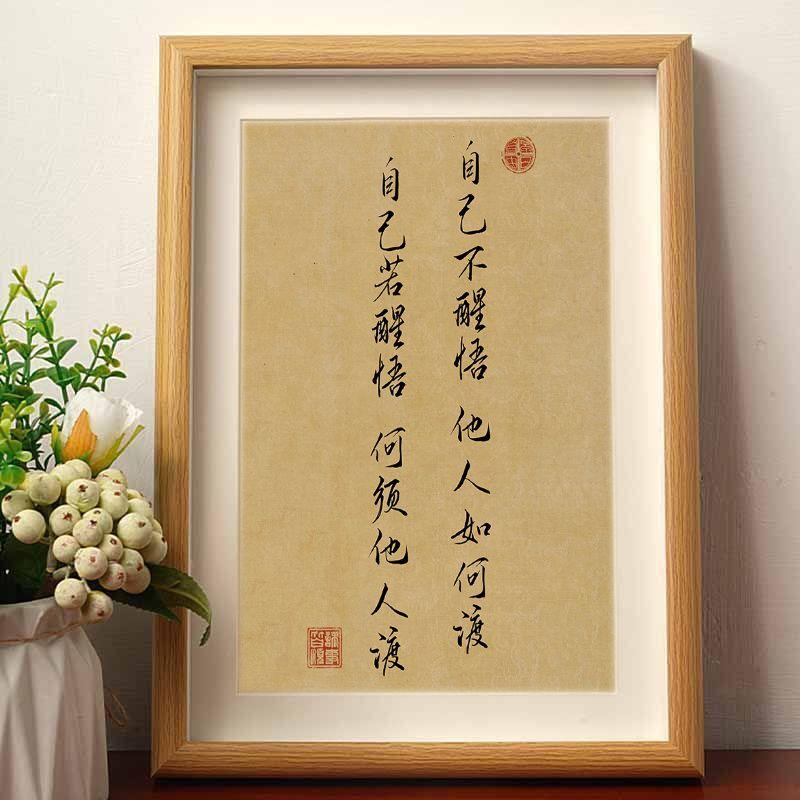 自己不醒悟 他人如何渡
自己若醒悟 何须他人渡